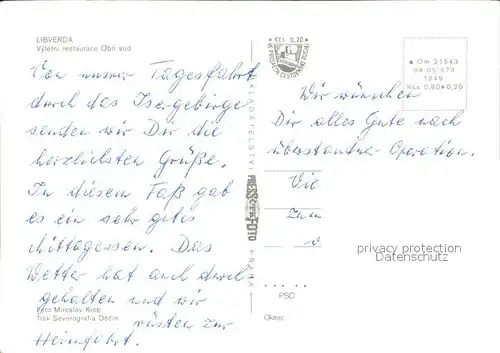 LIBVERDA
Výletní restaurace Obří sud
Von unserer Tagesfahrt
durch das Isergebirge
senden wir Dir die
herzlichsten Grüße.
In diesem Faß gab
es ein sehr gutes
Mittagessen. Das
Wetter hat auch durch-
gehalten und wir
Foto Miroslav Krob
Tisk Severografia Děčín
rüsten zur
Heimfahrt.
NAKLADATELSTVÍ PRESSFOTO PRAHA
Kčs 0,20
Om 21543
04 05 479
1849
Kčs 0,80 * 0,20
Wir wünschen
Dir alles Gute nach
überstandner Operation.
Vie
zum
privacy protection
Datenschutz
PSC
Okres: